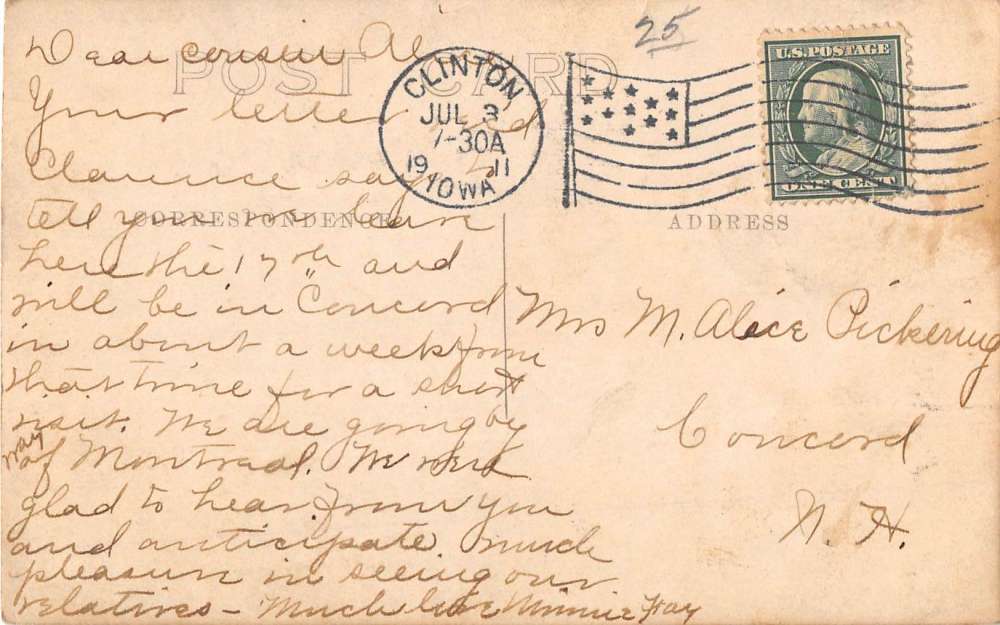 25
U.S.POSTAGE
ONE CENT 1
CLINTON,
JUL 3
7-30A
19 11
IOWA
POST CARD
CORRESPONDENCE
ADDRESS
Dear cousin Al
Your letter
Clarence say
tell you we leave
here the 17th and
will be in "Concord
in about a week from
that time for a short
visit. We are going by
way
of Montreal. We were
glad to hear from you
and anticipate much
pleasure in seeing our
relatives - Much love Minnie Fay
Mrs M. Alice Pickering
Concord
N. H.